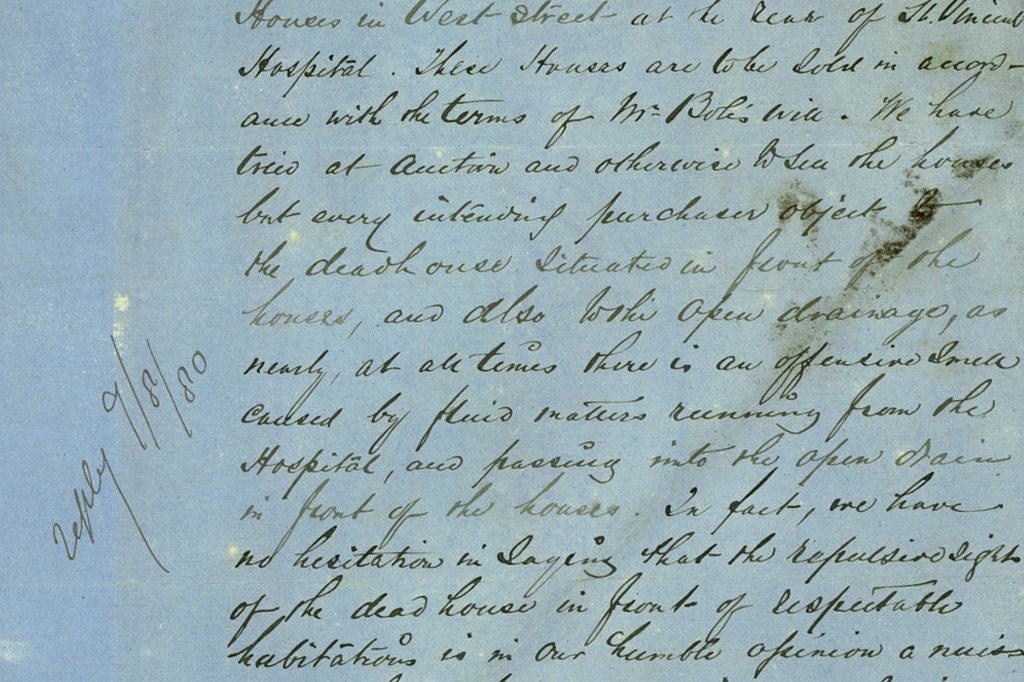 Houses in West street at the rear of St. Vincent
Hospital. These Houses are to be sold in accord-
ance with the terms of Mr Bott's will. We have
tried at Auction and otherwise to sell the houses
but every intending purchaser object to
the deadhouse situated in front of the
houses, and also to the open drainage, as
nearly, at all times there is an offensive smell
caused by fluid matters running from the
Hospital, and passing into the open drain
in front of the houses. In fact, we have
no hesitation in saying that the repulsive sight
of the dead house in front of respectable
habitations is in our humble opinion a nuis-
reply 9/8/80